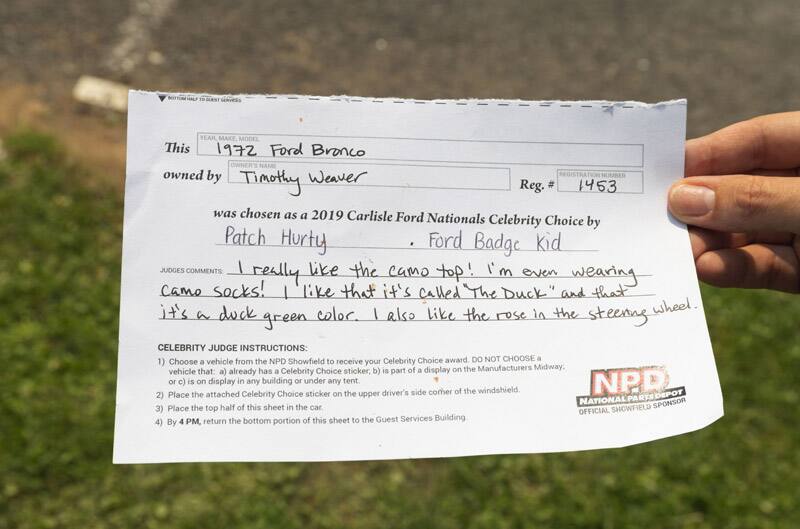 ▼ BOTTOM HALF TO GUEST SERVICES
YEAR, MAKE, MODEL
This 1972 Ford Bronco
OWNER'S NAME
owned by Timothy Weaver
REGISTRATION NUMBER
Reg. # 1453
was chosen as a 2019 Carlisle Ford Nationals Celebrity Choice by
Patch Hurty . Ford Badge Kid
JUDGES COMMENTS: I really like the camo top! I'm even wearing
camo socks! I like that it's called "The Duck" and that
it's a duck green color. I also like the rose in the steering wheel.
CELEBRITY JUDGE INSTRUCTIONS:
1) Choose a vehicle from the NPD Showfield to receive your Celebrity Choice award. DO NOT CHOOSE a
vehicle that: a) already has a Celebrity Choice sticker; b) is part of a display on the Manufacturers Midway;
or c) is on display in any building or under any tent.
2) Place the attached Celebrity Choice sticker on the upper driver's side corner of the windshield.
3) Place the top half of this sheet in the car.
4) By 4 PM, return the bottom portion of this sheet to the Guest Services Building.
NPD
NATIONAL PARTS DEPOT
OFFICIAL SHOWFIELD SPONSOR